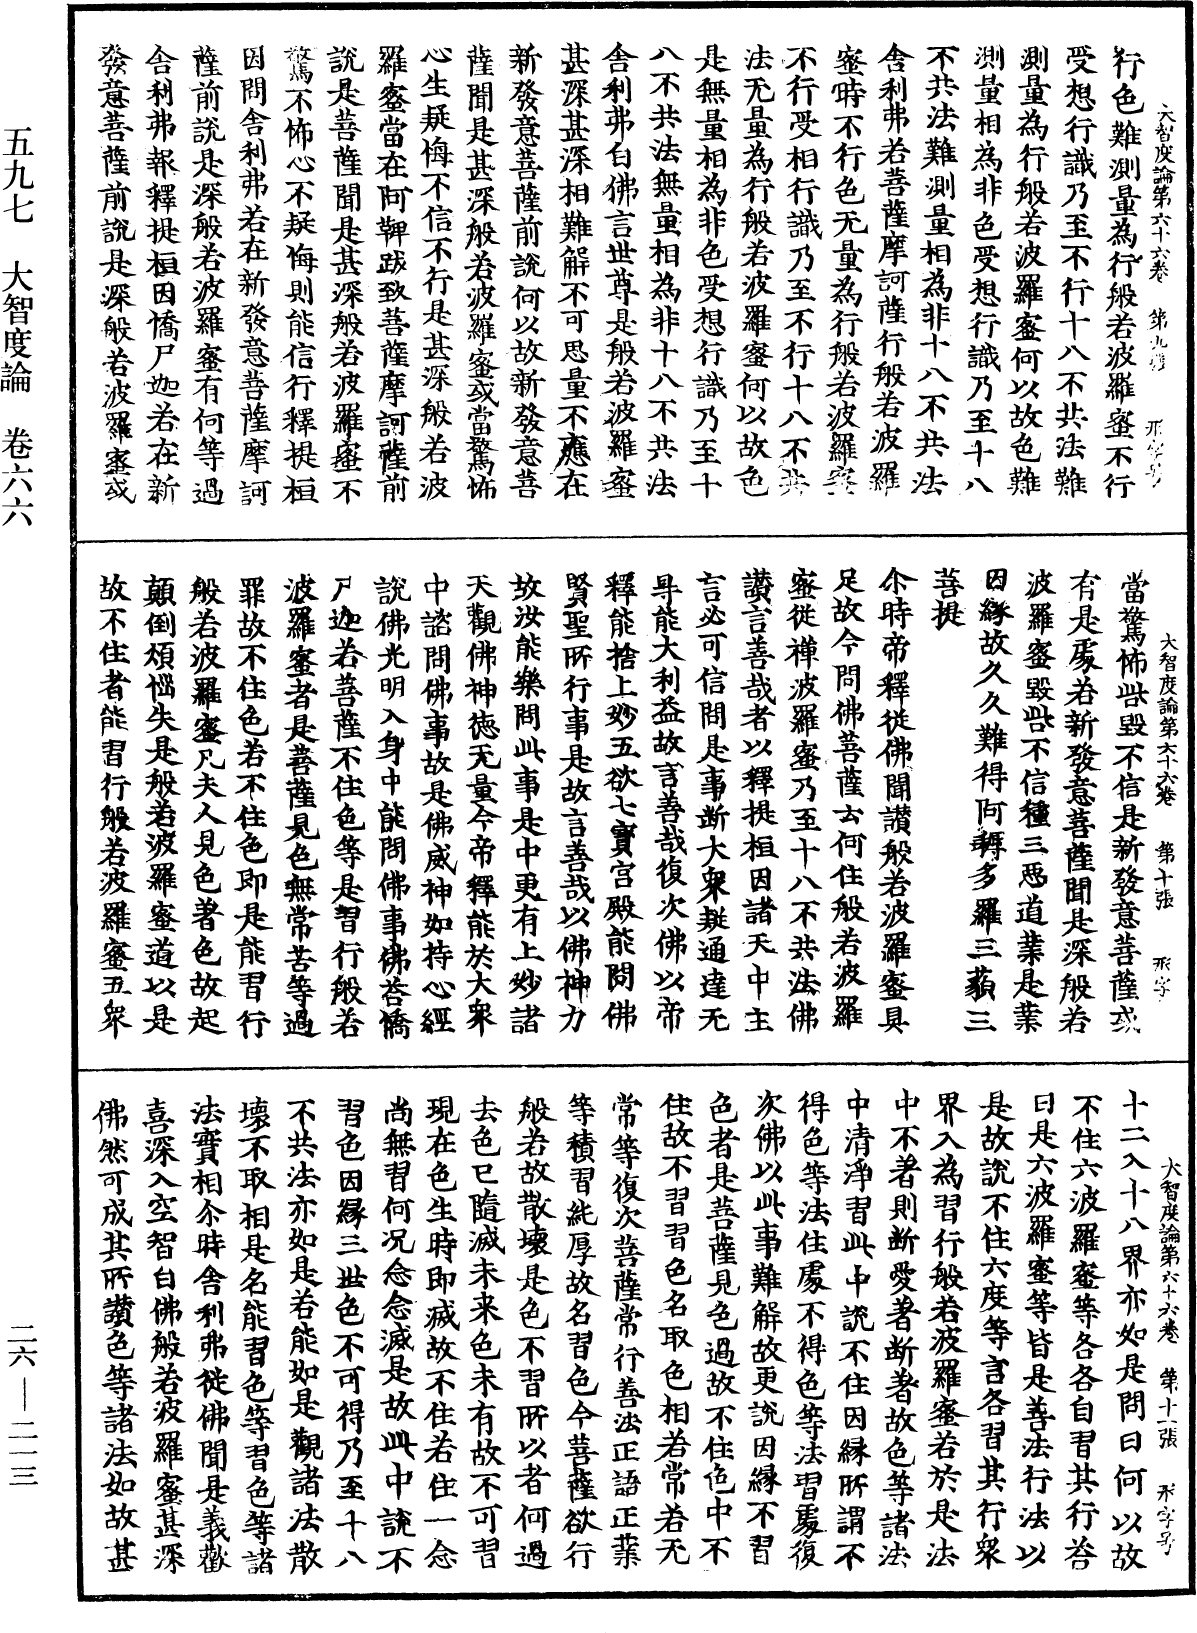 大智度論第六十六卷　第九張　形字号
行色難測量為行般若波羅蜜不行
受想行識乃至不行十八不共法難
測量為行般若波羅蜜何以故色難
測量相為非色受想行識乃至十八
不共法難測量相為非十八不共法
舍利弗若菩薩摩訶薩行般若波羅
蜜時不行色无量為行般若波羅蜜
不行受想行識乃至不行十八不共
法无量為行般若波羅蜜何以故色
是無量相為非色受想行識乃至十
八不共法無量相為非十八不共法
舍利弗白佛言世尊是般若波羅蜜
甚深甚深相難解不可思量不應在
新發意菩薩前說何以故新發意菩
薩聞是甚深般若波羅蜜或當驚怖
心生疑悔不信不行是甚深般若波
羅蜜當在阿鞞跋致菩薩摩訶薩前
說是菩薩聞是甚深般若波羅蜜不
驚不怖心不疑悔則能信行釋提桓
因問舍利弗若在新發意菩薩摩訶
薩前說是深般若波羅蜜有何等過
舍利弗報釋提桓因憍尸迦若在新
發意菩薩前說是深般若波羅蜜或
大智度論第六十六卷　第十張　形字
當驚怖此毀不信是新發意菩薩或
有是處若新發意菩薩聞是深般若
波羅蜜毀此不信種三惡道業是業
因緣故久久難得阿耨多羅三藐三
菩提
尒時帝釋從佛聞讚般若波羅蜜具
足故今問佛菩薩云何住般若波羅
蜜從禪波羅蜜乃至十八不共法佛
讚言善哉者以釋提桓因諸天中主
言必可信問是事斷大衆疑通達无
㝵能大利益故言善哉復次佛以帝
釋能捨上妙五欲七寶宮殿能問佛
賢聖所行事是故言善哉以佛神力
故汝能樂問此事是中更有上妙諸
天觀佛神德无量今帝釋能於大衆
中諮問佛事故是佛威神如持心經
說佛光明入身中能問佛事佛荅憍
尸迦若菩薩不住色等是習行般若
波羅蜜者是菩薩見色無常苦等過
罪故不住色若不住色即是能習行
般若波羅蜜凡夫人見色著色故起
顛倒煩惱失是般若波羅蜜道以是
故不住者能習行般若波羅蜜五衆
大智度論第六十六卷　第十一張　形字号
十二入十八界亦如是問曰何以故
不住六波羅蜜等各各自習其行荅
曰是六波羅蜜等皆是善法行法以
是故說不住六度等言各習其行衆
界入為習行般若波羅蜜若於是法
中不著則斷愛著斷著故色等諸法
中清淨習此中說不住因緣所謂不
得色等法住處不得色等法習處復
次佛以此事難解故更說因緣不習
色者是菩薩見色過故不住色中不
住故不習習色名取色相若常若无
常等復次菩薩常行善法正語正業
等積習純厚故名習色今菩薩欲行
般若故散壞是色不習所以者何過
去色已隨滅未来色未有故不可習
現在色生時即滅故不住若住一念
尚無習何况念念滅是故此中說不
習色因緣三世色不可得乃至十八
不共法亦如是若能如是觀諸法散
壞不取相是名能習色等習色等諸
法實相尒時舍利弗從佛聞是義歡
喜深入空智白佛般若波羅蜜甚深
佛然可成其所讚色等諸法如故甚
五九七　大智度論　卷六六　二六—二一三